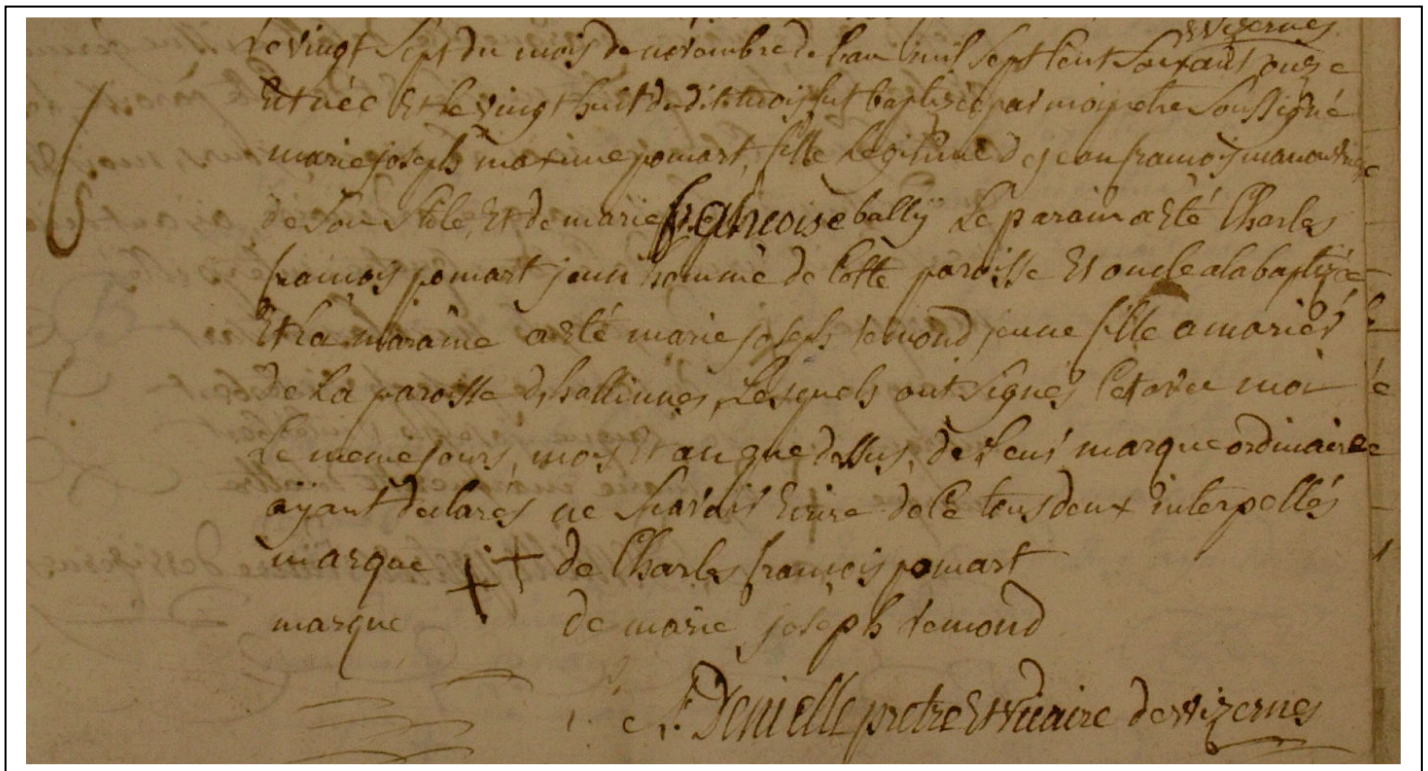 Wizernes
Le vingt Sept du mois de novembre de l'an mil Sept Cent Soixante onze
Est née Et le vingt huit dudit mois fut baptisée par moi pretre Soussigné
marie joseph maxime pomart, fille Legitime de jean francois
de Son Stile, Et de marie francoise bally Le parain a Eté Charles
francois pomart jeune homme de Cette paroisse Et oncle a la baptizée
Et La maraine a eté marie joseph jeune fille a marier
de La paroisse d'hallinnes, Lesquels ont Signés Cet avec moi
Le meme jours, mois et an que dessus, de leur marque ordinaire
aÿant declares ne Scavoir Ecrire de Ce tous deux interpellés
marque de Charles francois pomart
marque de marie joseph
Denielle pretre Et vicaire de wizernes